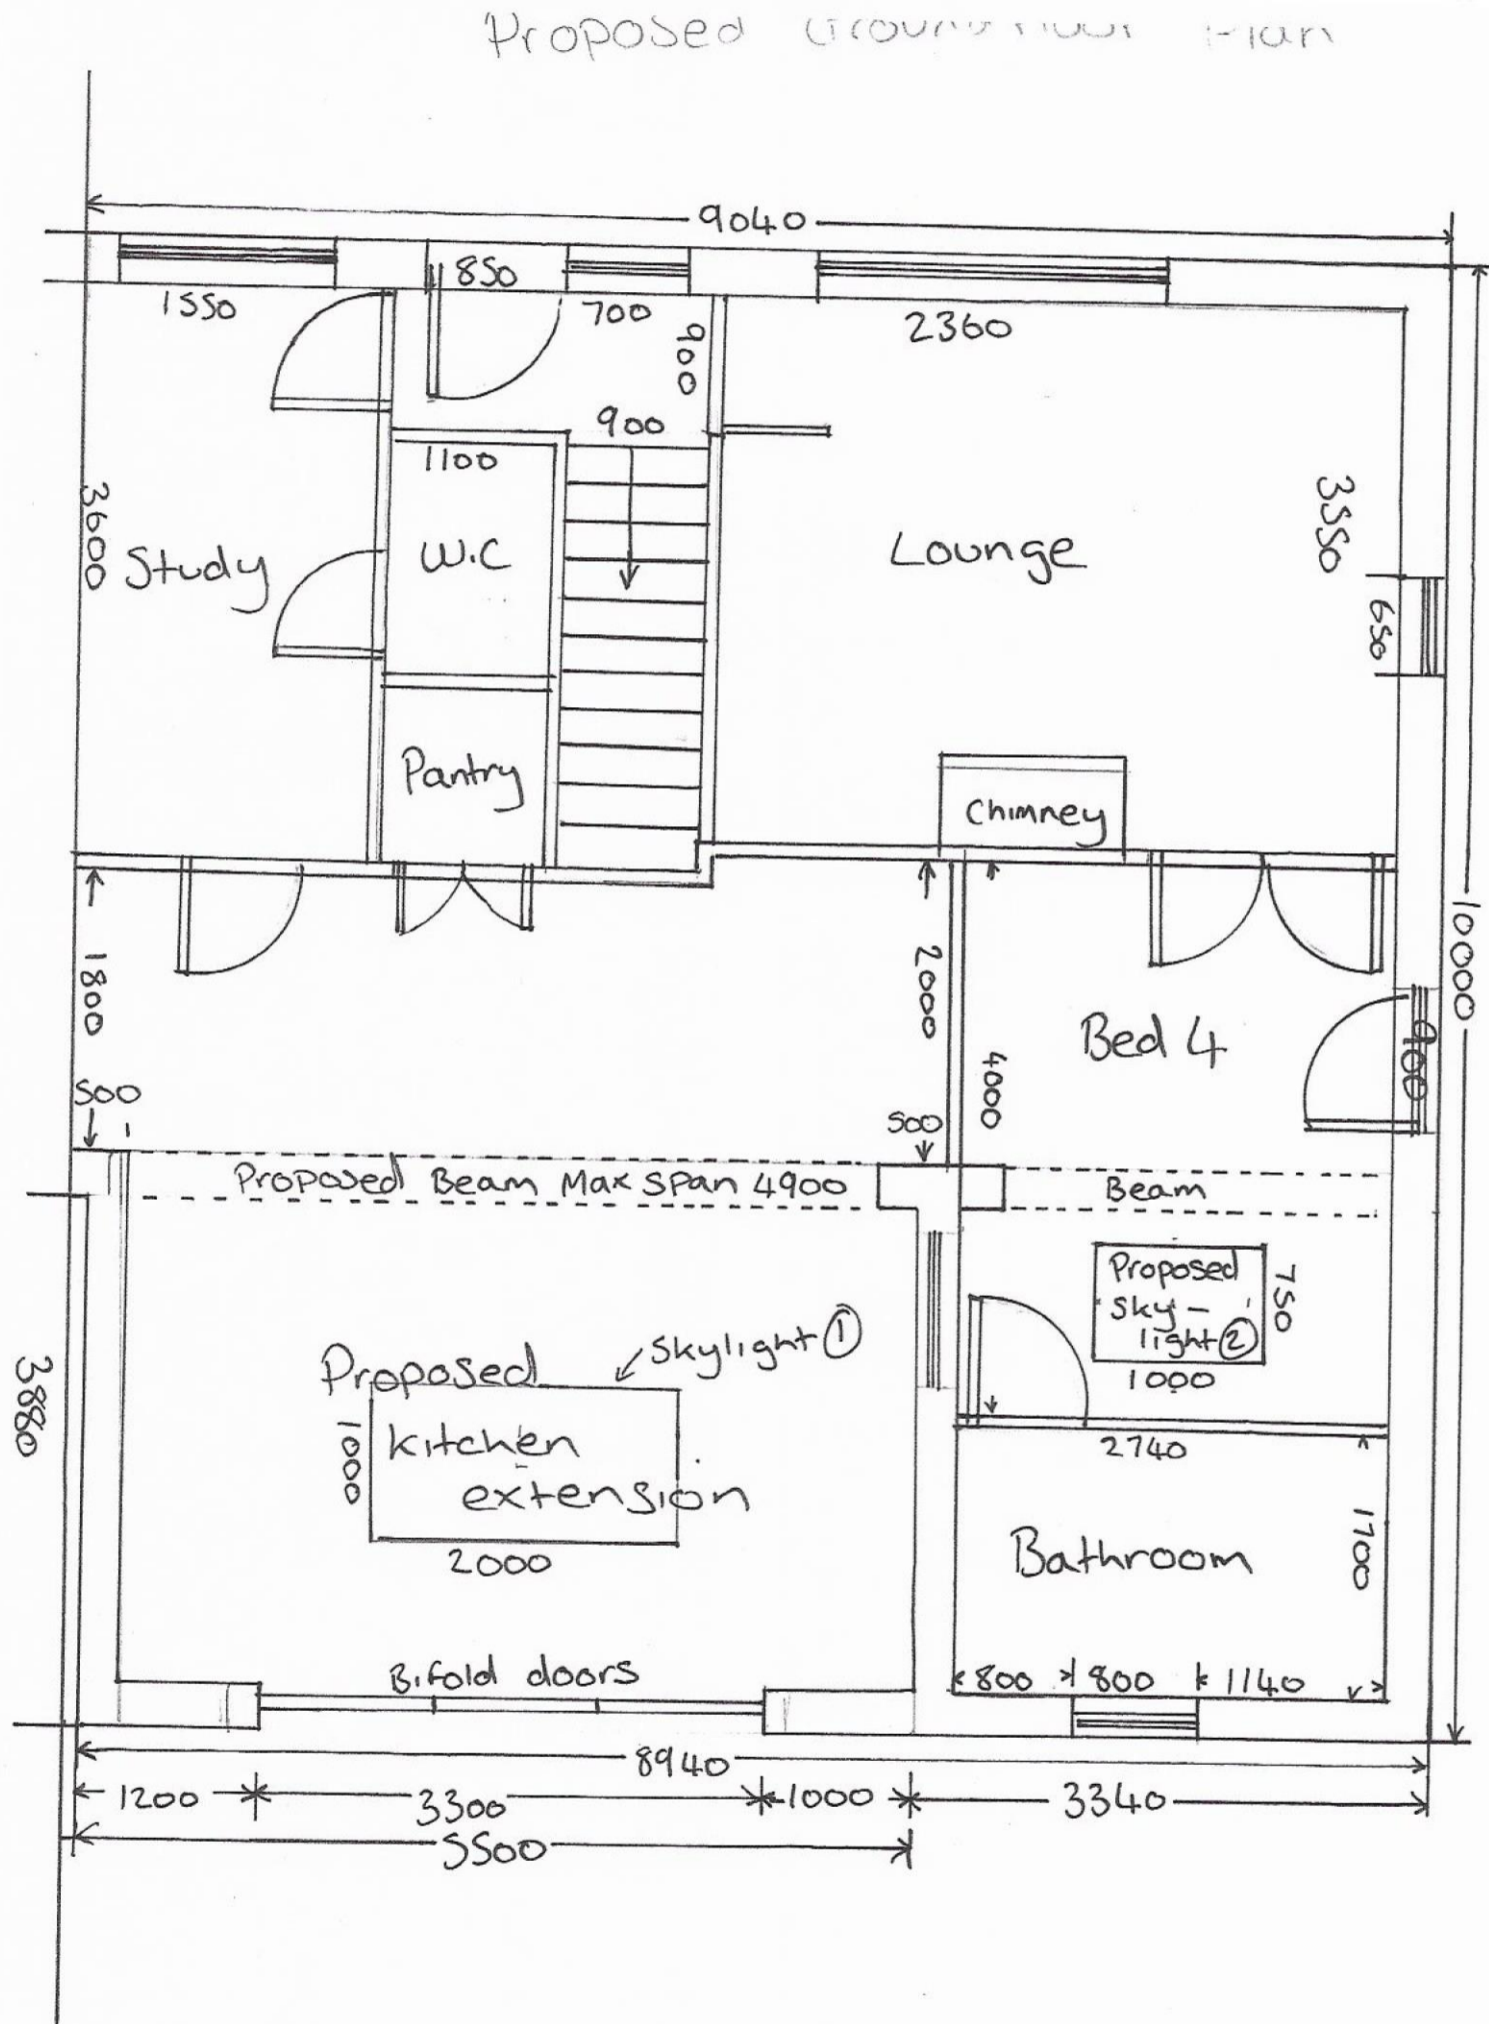 Proposed Ground Floor Plan
9040
850
1550
700
2360
900
900
1100
3600
Study
W.C
Lounge
3550
650
Pantry
Chimney
1800
2000
10000
Bed 4
900
4000
500
500
Proposed Beam Max span 4900
Beam
Proposed
sky-
light 2
750
1000
Skylight 1
Proposed
kitchen
extension
1000
2000
3880
2740
Bathroom
1700
Bifold doors
800
800
1140
8940
1200
3300
1000
3340
5500